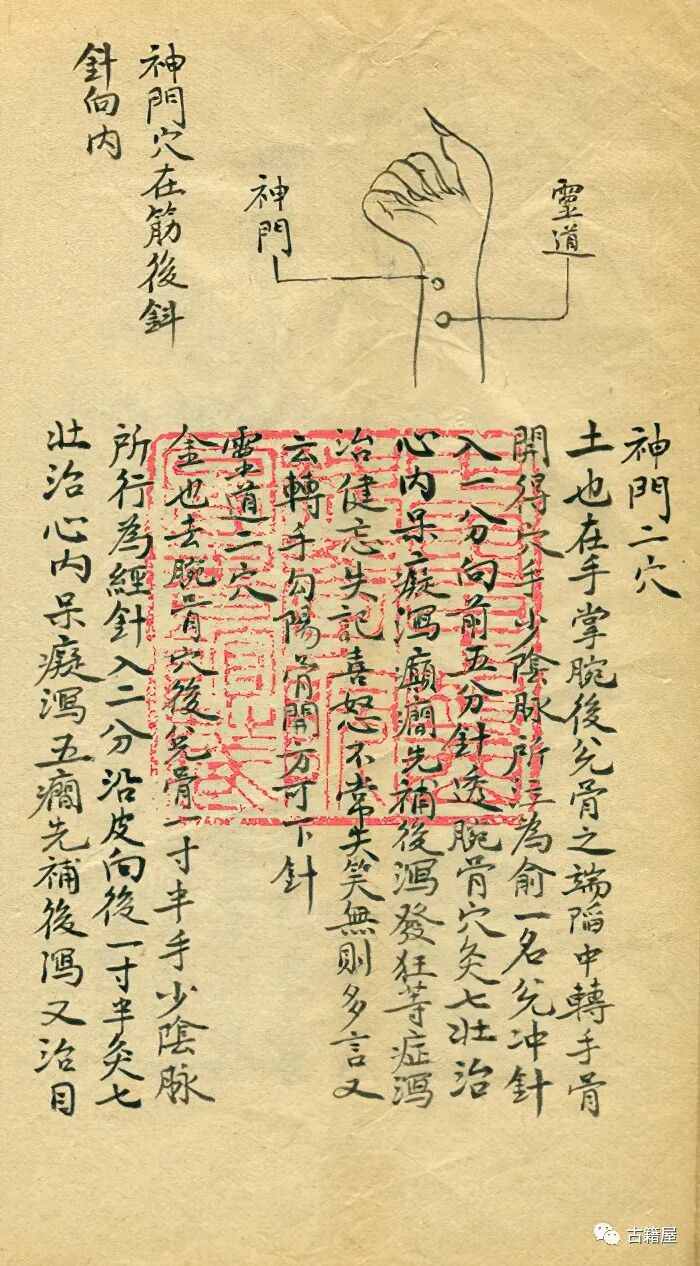 神門穴在筋後斜
針向内
神門
靈道
神門二穴
土也在手掌腕後兌骨之端陷中轉手骨
開得穴手少陰脉所注為俞一名兌冲針
入一分向前五分針透腕骨穴灸七壯治
心内呆癡瀉癲癇先補後瀉發狂等症瀉
治健忘失記喜怒不常失笑無則多言又
云轉手勾陽骨開方可下針
靈道二穴
金也去腕骨穴後兌骨一寸半手少陰脉
所行為經針入二分沿皮向後一寸半灸七
壯治心内呆癡瀉五癇先補後瀉又治目
古籍屋